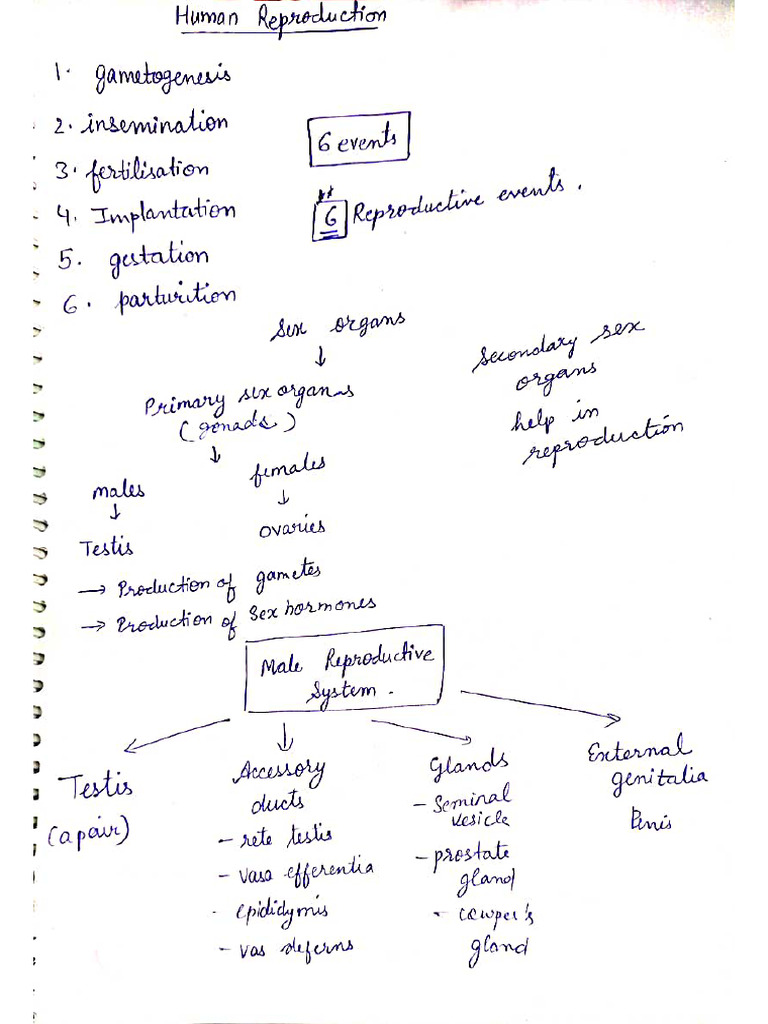 Human Reproduction
1. gametogenesis
2. insemination
3. fertilisation
4. Implantation
5. gestation
6. parturition
6 events
** 6 Reproductive events.
Sex organs
↓
Primary sex organs
(gonads)
↓
males
↓
Testis
females
↓
ovaries
Secondary sex
organs
help in
reproduction
→ Production of gametes
→ Production of Sex hormones
Male Reproductive
System.
Testis
(a pair)
Accessory
ducts
- rete testis
- vasa efferentia
. epididymis
- vas deferns
Glands
- Seminal
vesicle
- prostate
gland
- cowper's
gland
External
genitalia
Penis